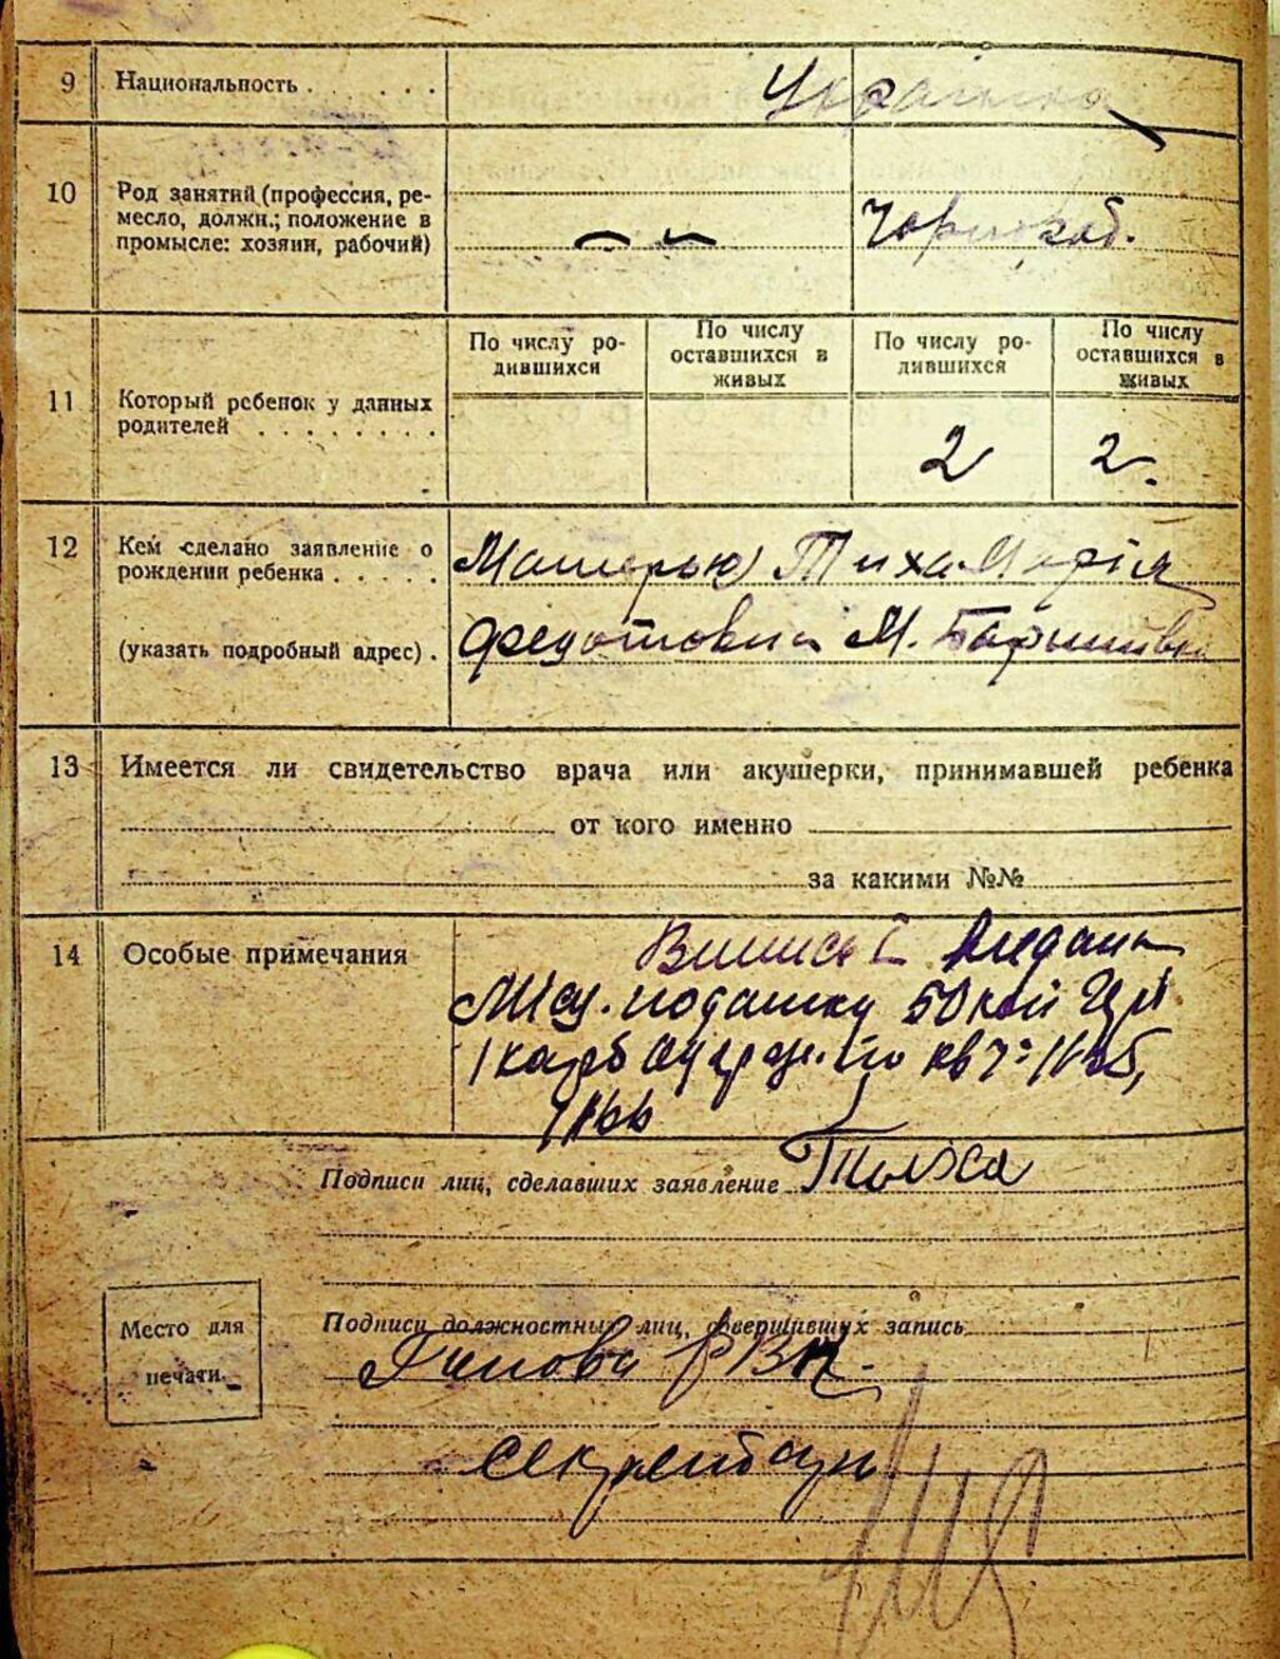 9 Национальность . . . . . . Українка
10 Род занятий (профессия, ре-
месло, должн.; положение в
промысле: хозяин, рабочий) Чорнороб.
11 Который ребенок у данных
родителей . . . . . . . .
По числу ро-
дившихся
По числу
оставшихся в
живых
По числу ро-
дившихся
По числу
оставшихся в
живых
2 2
12 Кем сделано заявление о
рождении ребенка . . . . .
(указать подробный адрес) .
Матерью Тиха Марія
Федотовна М. Баришівка
13 Имеется ли свидетельство врача или акушерки, принимавшей ребенка
от кого именно
за какими №№
14 Особые примечания
податку 50 коп
1 карб по кв
Подписи лиц, сделавших заявление Тыха
Подписи должностных лиц, совершивших запись
Голова РВК.
секретарь
Место для
печати.